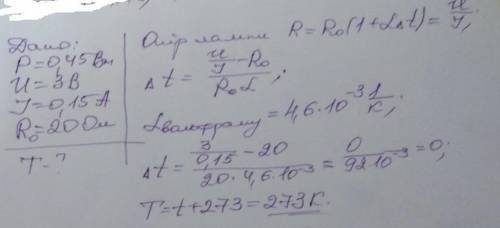 Дано:
P=0,45Вт
U=3В
J=0,15А
R₀=20Ом
T-?
Опір лампи R=R₀(1+LΔt)=U/J;
Δt=(U/J-R₀)/(R₀L);
Lвольфраму=4,6·10⁻³ 1/К;
Δt=(3/0,15-20)/(20·4,6·10⁻³)=0/(92·10⁻³)=0;
T=t+273=273К.